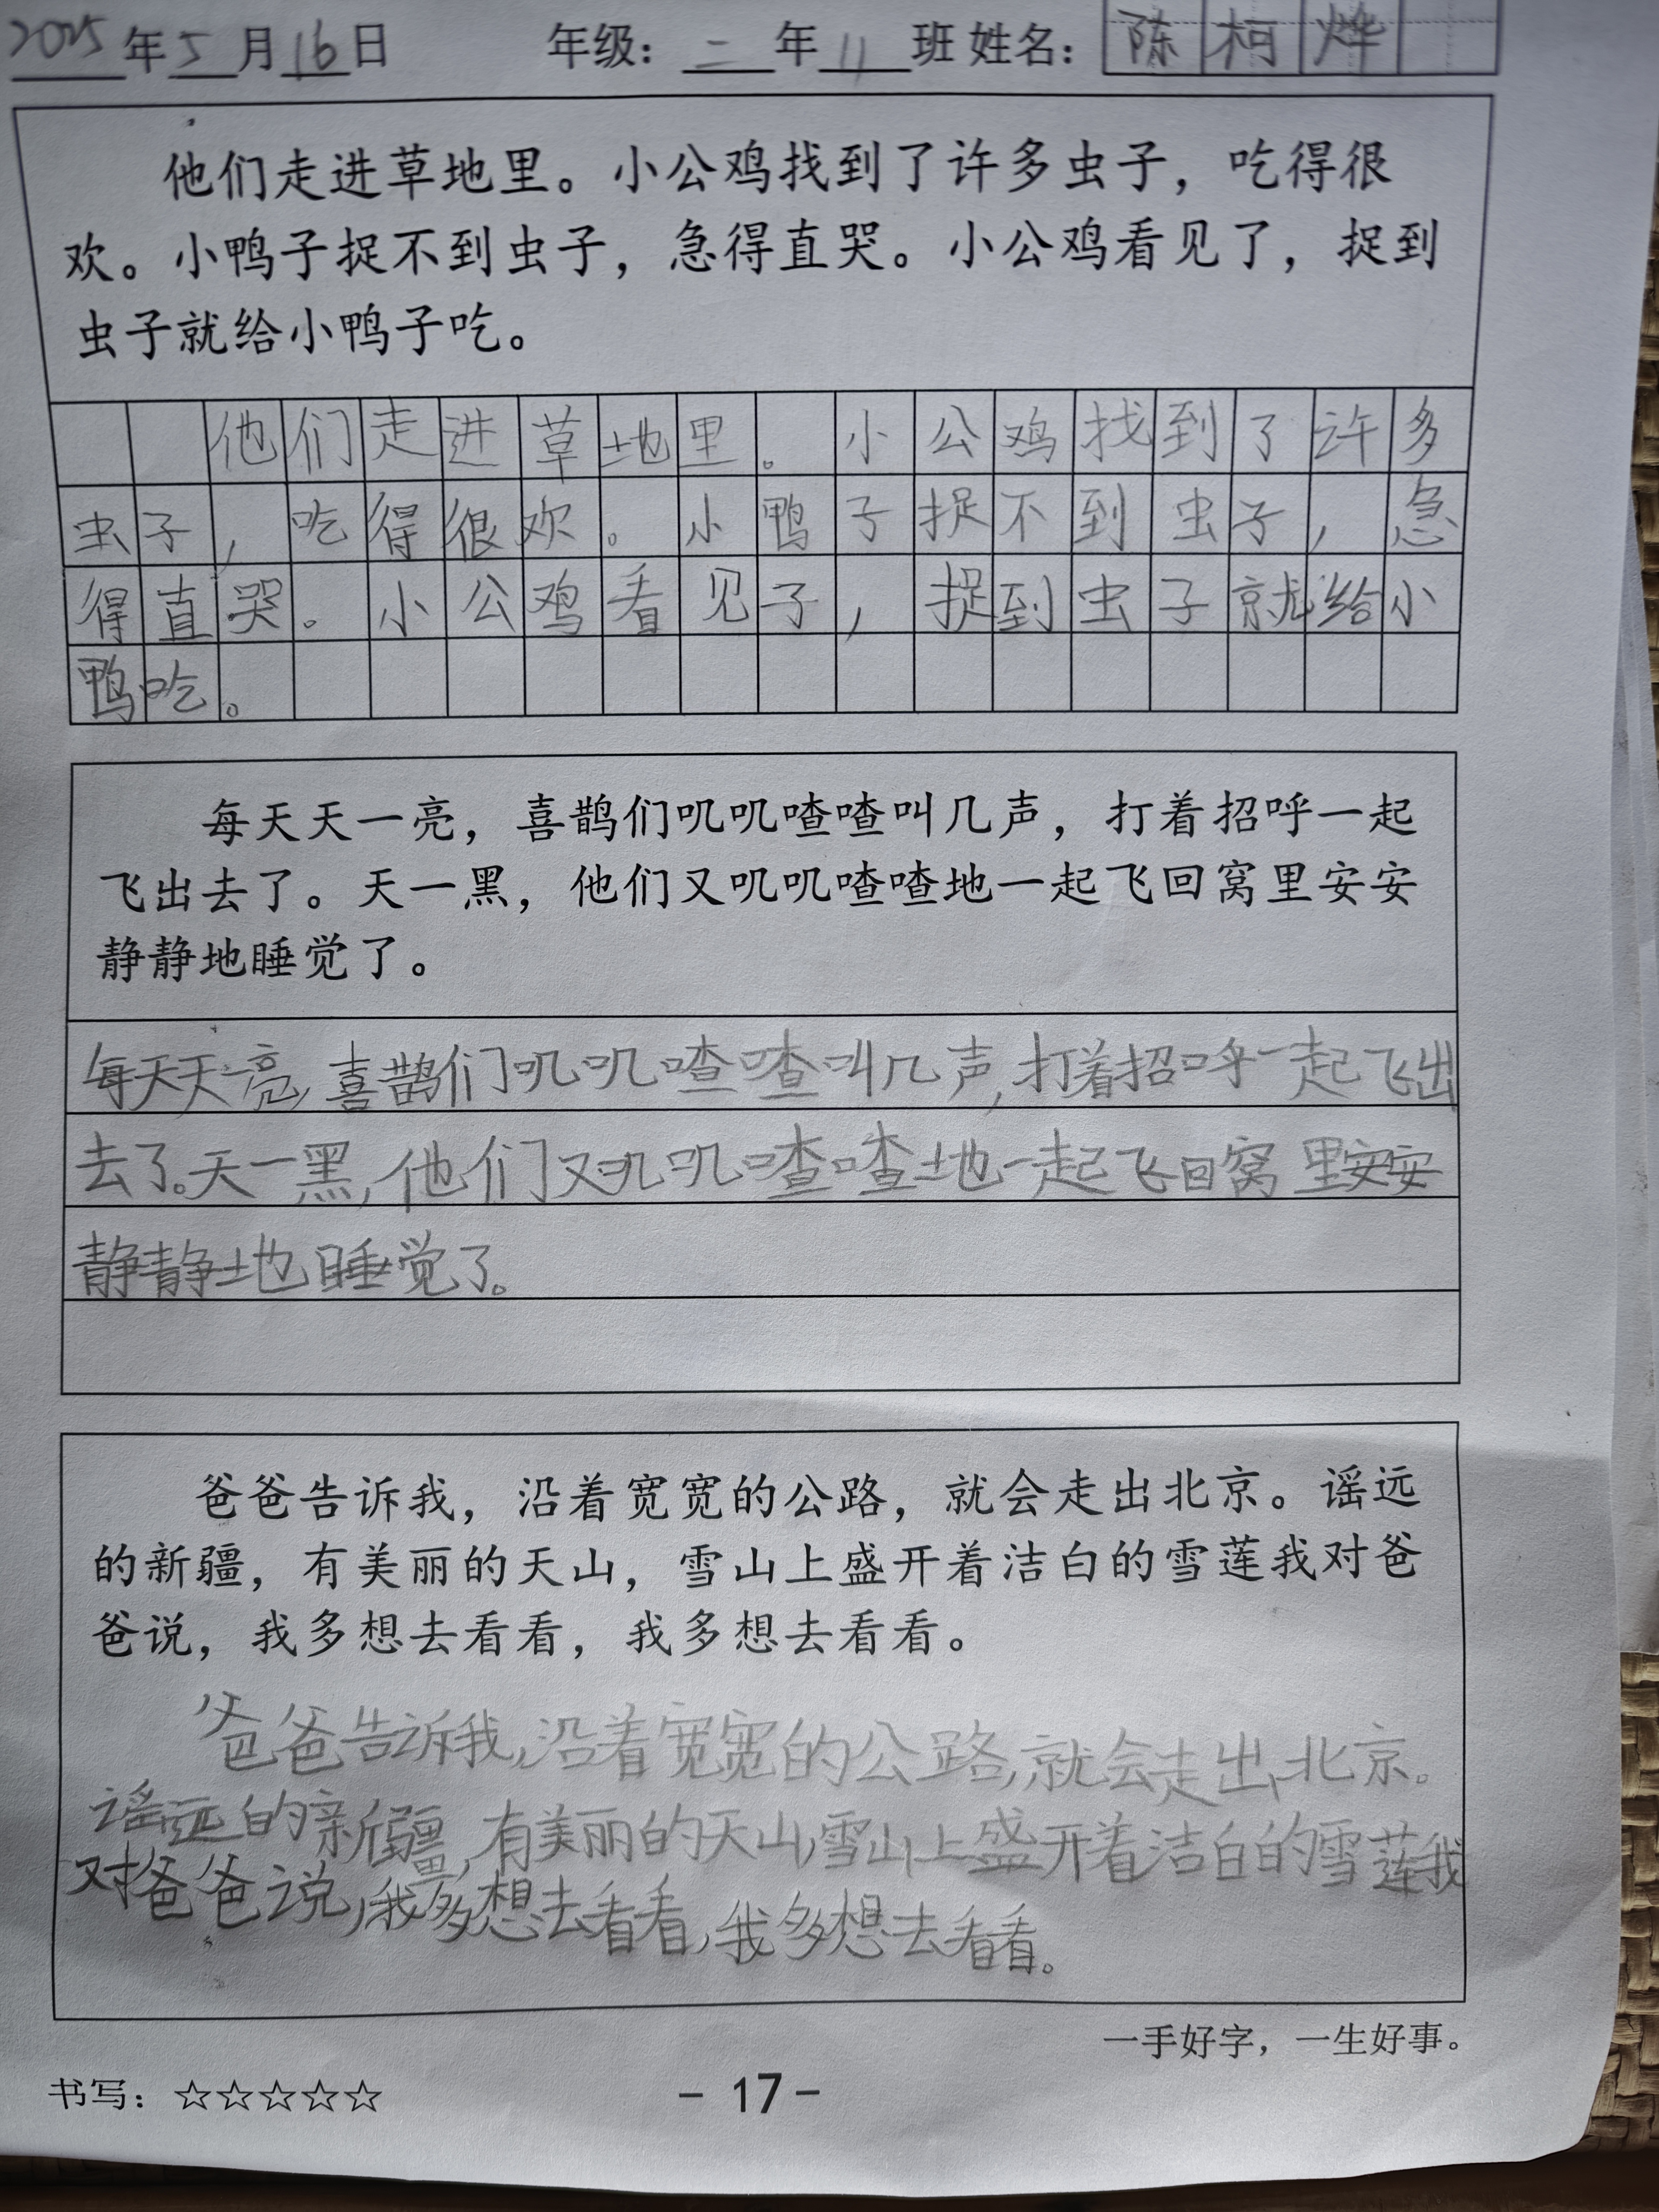 2025年5月16日 年级：二年11班 姓名：陈柯烨
他们走进草地里。小公鸡找到了许多虫子，吃得很
欢。小鸭子捉不到虫子，急得直哭。小公鸡看见了，捉到
虫子就给小鸭子吃。
他们走进草地里。小公鸡找到了许多
虫子，吃得很欢。小鸭子捉不到虫子，急
得直哭。小公鸡看见子，捉到虫子就给小
鸭吃。
每天天一亮，喜鹊们叽叽喳喳叫几声，打着招呼一起
飞出去了。天一黑，他们又叽叽喳喳地一起飞回窝里安安
静静地睡觉了。
每天天一亮,喜鹊们叽叽喳喳叫几声,打着招呼一起飞出
去了。天一黑,他们又叽叽喳喳地一起飞回窝里安安
静静地睡觉了。
爸爸告诉我，沿着宽宽的公路，就会走出北京。谣远
的新疆，有美丽的天山，雪山上盛开着洁白的雪莲我对爸
爸说，我多想去看看，我多想去看看。
爸爸告诉我,沿着宽宽的公路,就会走出北京。
谣远的新疆,有美丽的天山,雪山上盛开着洁白的雪莲我
对爸爸说,我多想去看看,我多想去看看。
一手好字，一生好事。
书写：☆☆☆☆☆ - 17 -